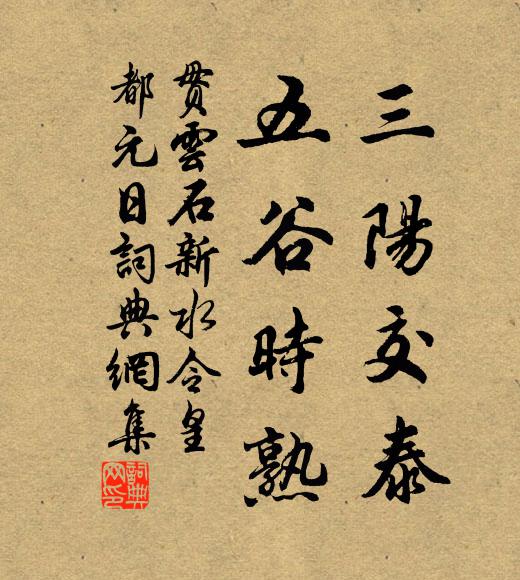 三陽交泰
五谷時熟
貫雲石新水令皇
都元日詞典網集
詞典
网印